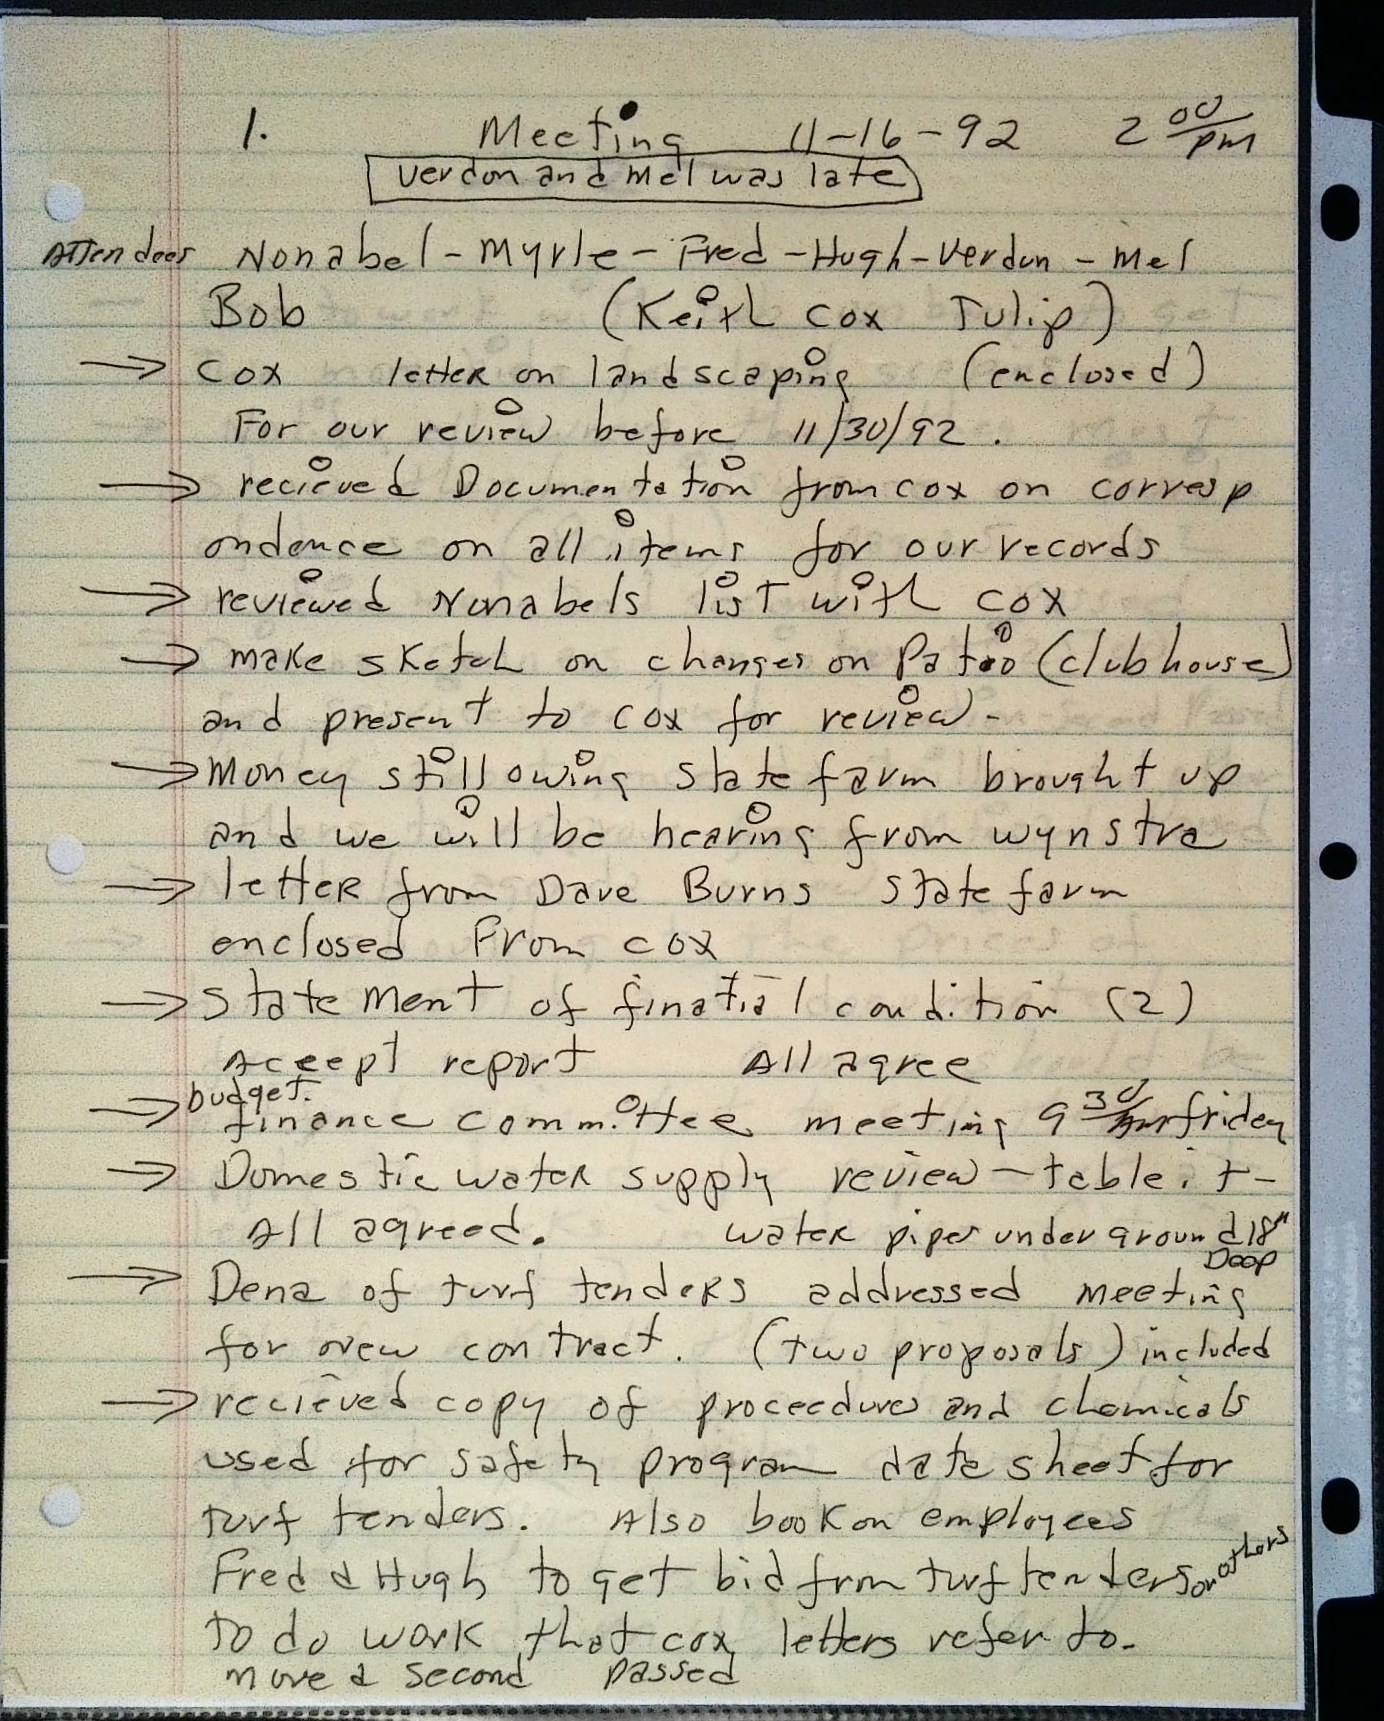 1. Meeting 11-16-92 2 00/pm
Verdon and Mel was late
Attendees Nonabel - Myrle - Fred - Hugh - Verdon - Mel
Bob (Keith Cox Tulip)
→ Cox letter on landscaping (enclosed)
For our review before 11/30/92.
→ recieved Documentation from cox on corresp
ondence on all items for our records
→ reviewed Nonabels list with cox
→ make sketch on changes on Patio (clubhouse)
and present to cox for review -
→ Money still owing state farm brought up
and we will be hearing from wynstra
→ letter from Dave Burns state farm
enclosed From cox
→ statement of finatial condition (2)
Accept report All agree
budget.
→ finance committee meeting 9 30/Am friday
→ Domestic water supply review - table it -
All agreed. water pipes underground 18"
Deep
→ Dena of turf tenders addressed meeting
for new contract. (two proposals) included
→ recieved copy of proceedures and chemicals
used for safety program date sheet for
turf tenders. Also book on employees
Fred & Hugh to get bid from turf tenders or others
to do work that cox letters refer to.
move & second passed